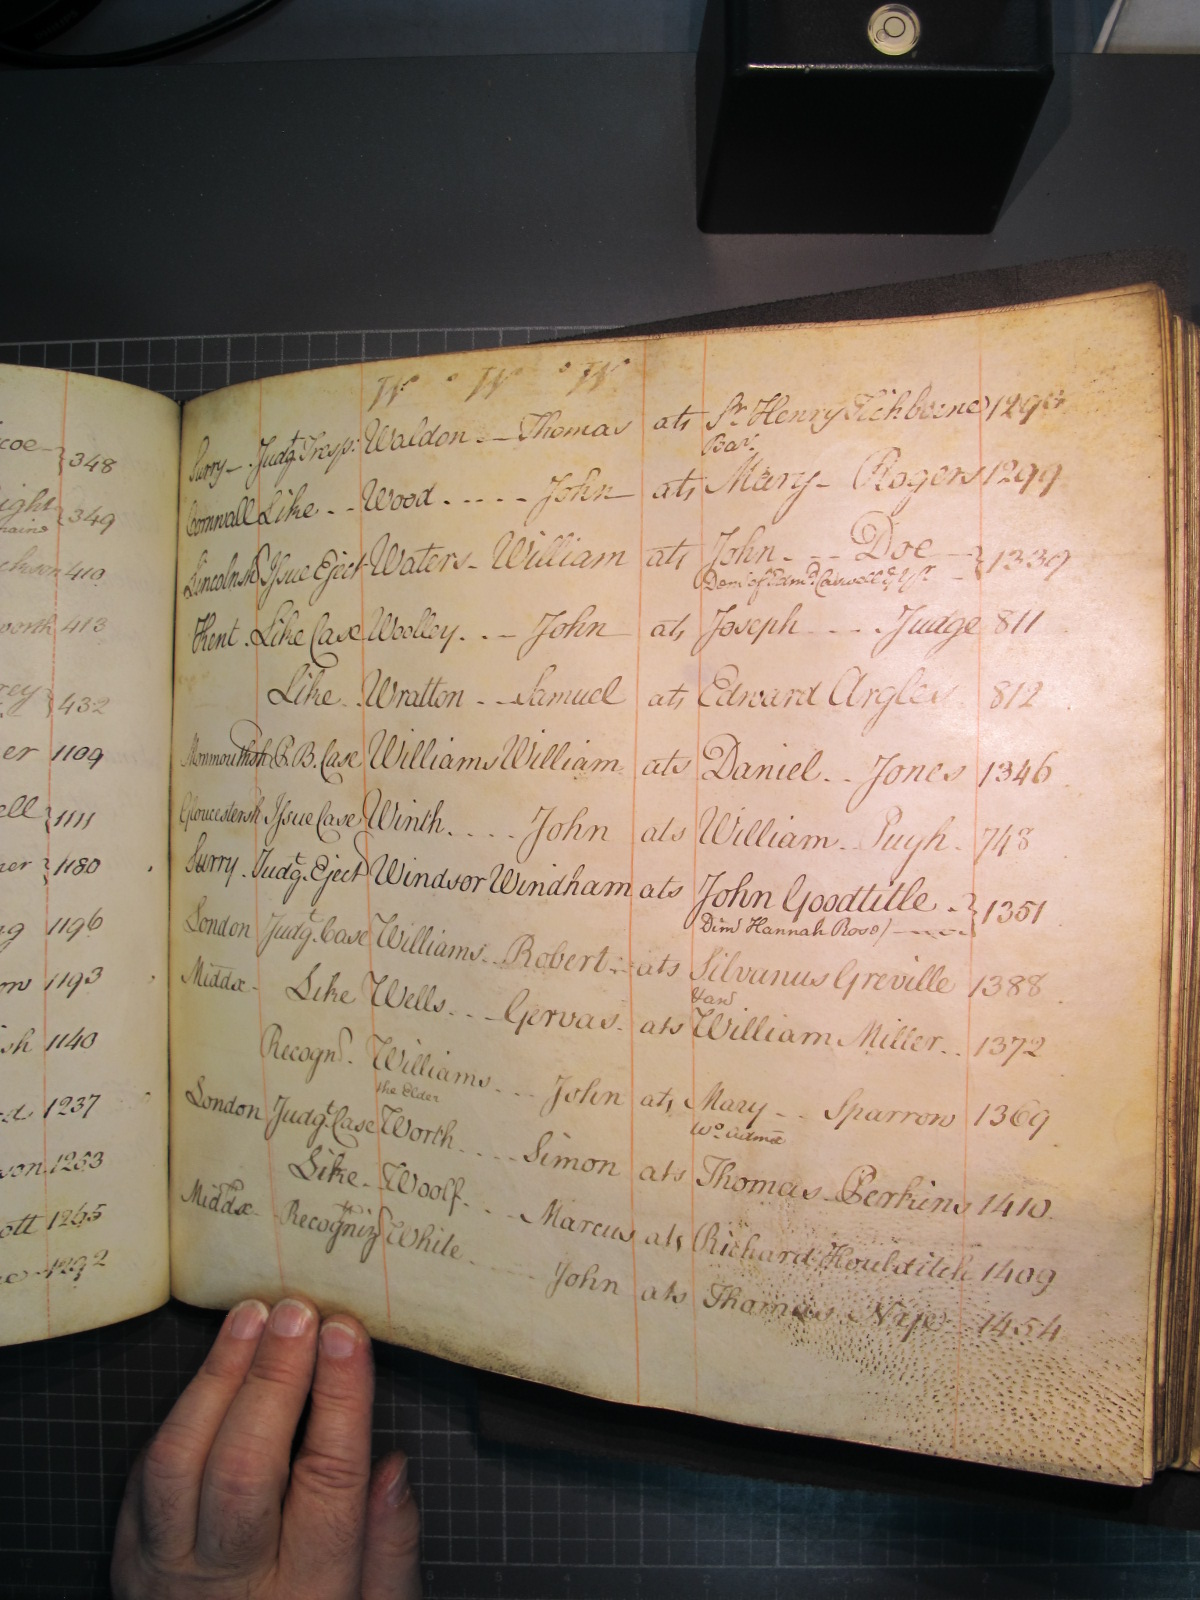 coe 348
ight 349
ckson 410
worth 413
rey 432
er 1109
ell 1111
er 1180
g 1196
m 1193
sh 1140
1237
son 1253
ott 1265
1292
W W W
Surry Judgt. Tresp: Waldon Thomas ats Sr. Henry Tichborne
Bart.
Cornwall Like Wood John ats Mary Rogers 1299
Lincolnsh Issue Eject Waters William ats John Doe 1339
Dem of Edmd. Caswell
Kent Like Case Woolley John ats Joseph Judge 811
Like Wratton Samuel ats Edward Argles 812
Monmouthsh P.B. Case Williams William ats Daniel Jones 1346
Gloucestersh Issue Case Winth John ats William Pugh 748
Surry Judgt. Eject Windsor Windham ats John Goodtitle 1351
Dim Hannah Rose
London Judgt. Case Williams Robert ats Silvanus Greville 1388
Middx Like Wells Gervas ats William Miller 1372
Recogn. Williams John ats Mary Sparrow 1369
the Elder Wo. admx
London Judgt. Case Worth Simon ats Thomas Perkins 1410
Like Woolf Marcus ats Richard Houlditch 1409
Middx Recogniz White John ats Thomas 1454